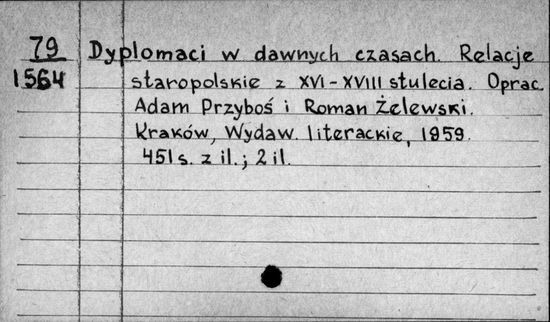 79 Dyplomaci w dawnych czasach. Relacje
1564 staropolskie z XVI-XVIII stulecia. Oprac.
Adam Przyboś i Roman Żelewski.
Kraków, Wydaw. literackie, 1959.
451 s. z il.; 2 il.